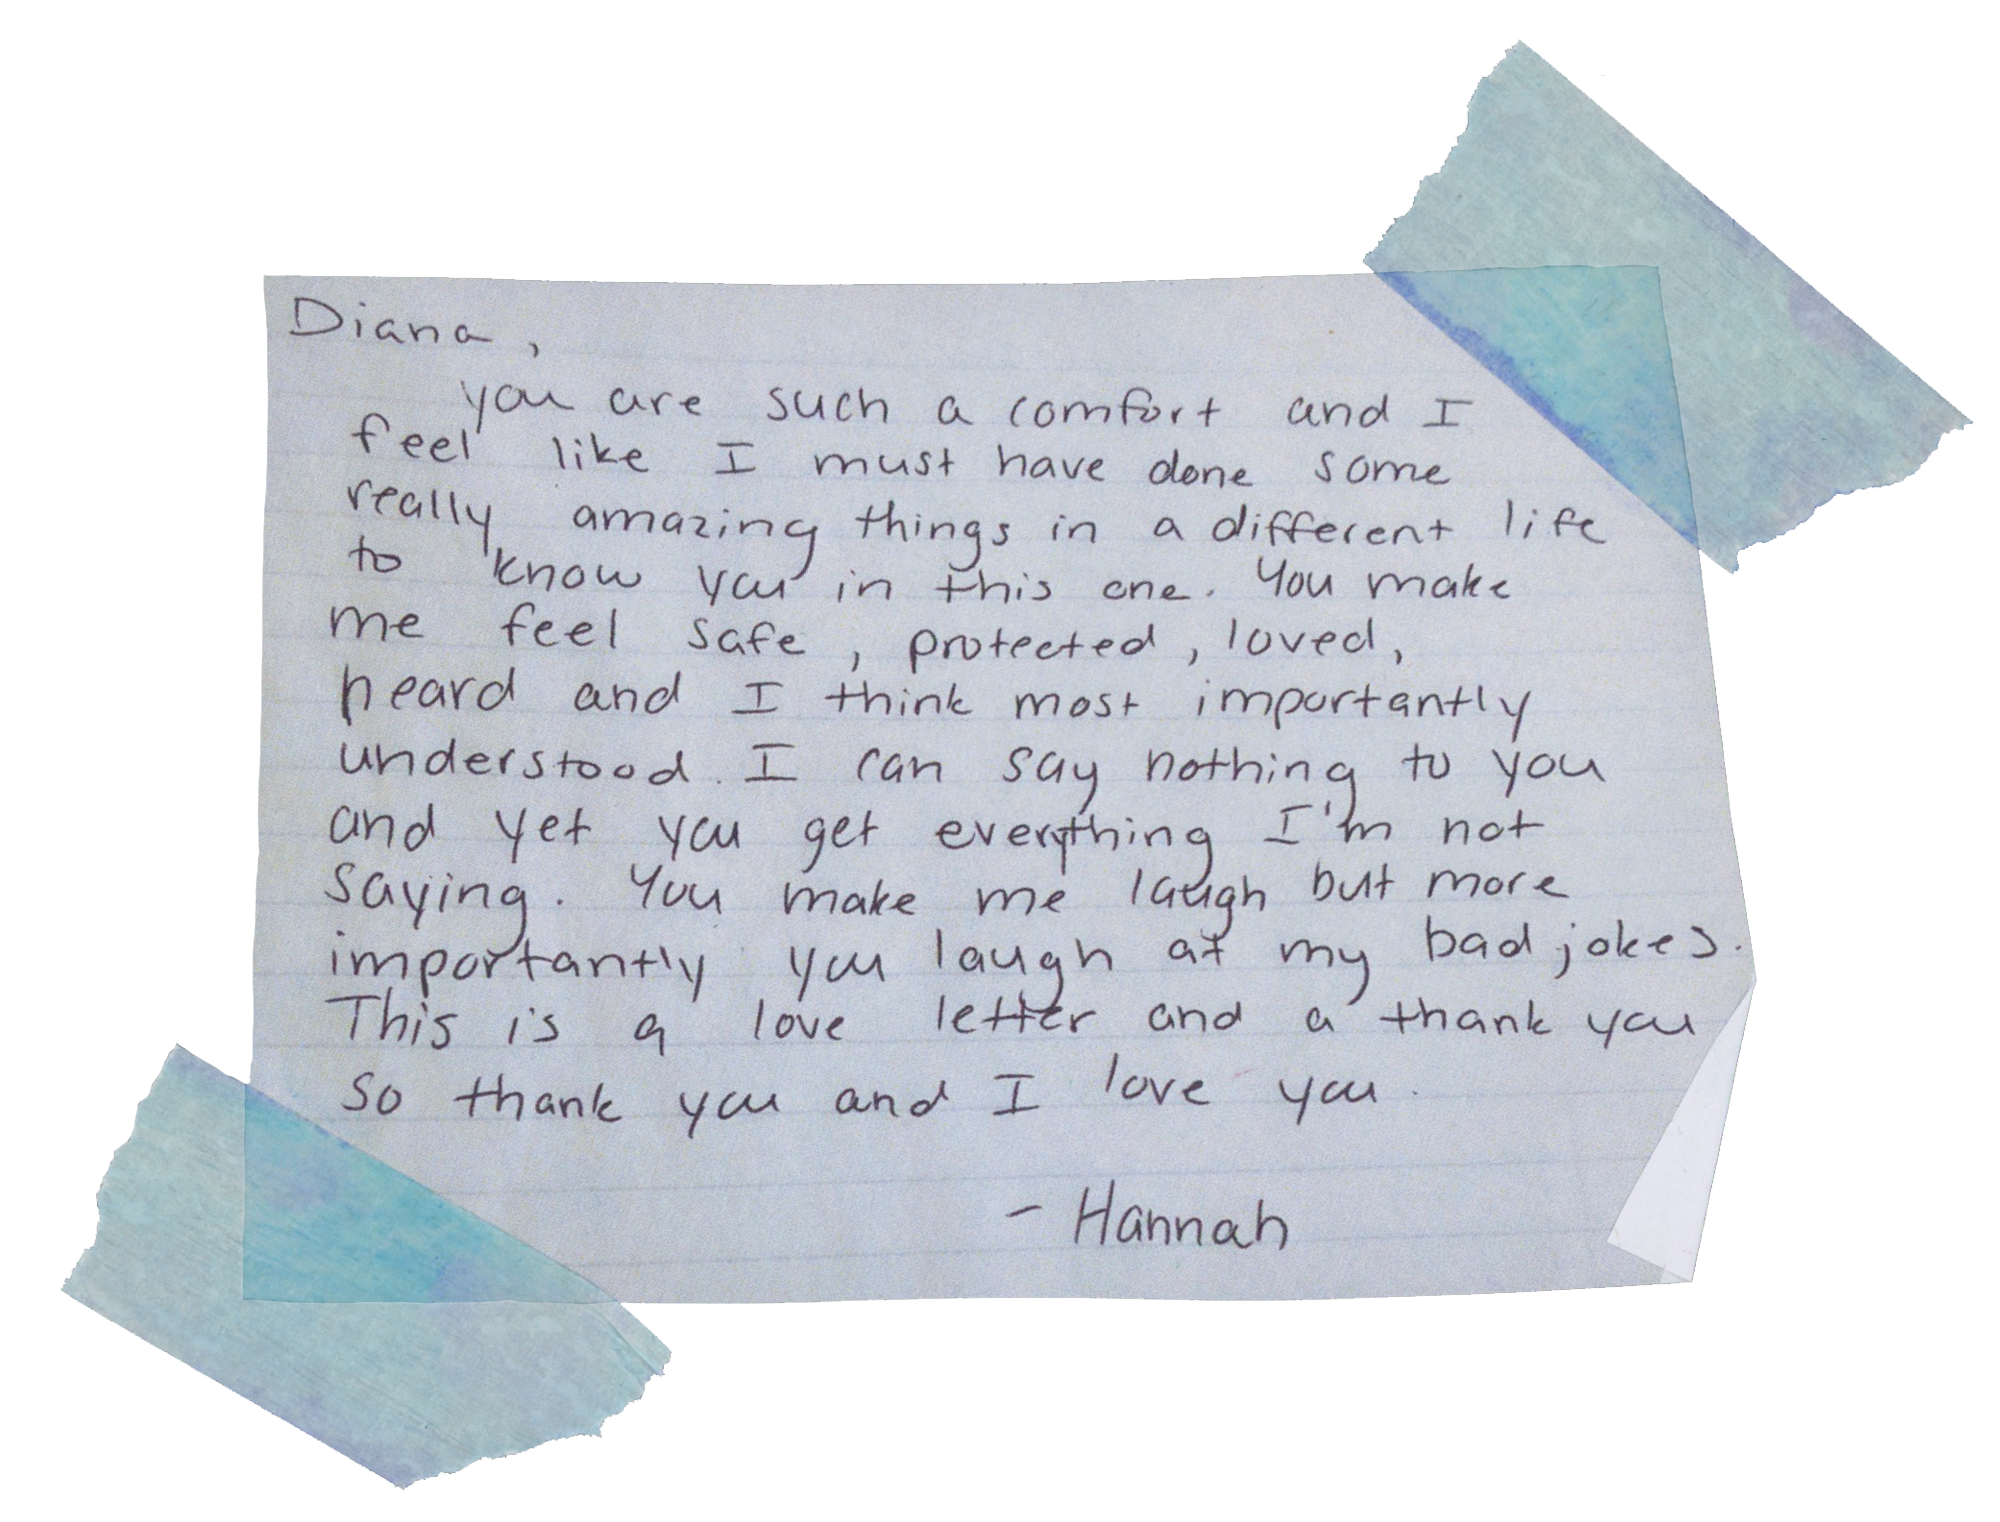 Diana,
you are such a comfort and I
feel like I must have done some
really amazing things in a different life
to know you in this one. You make
me feel safe, protected, loved,
heard and I think most importantly
understood. I can say nothing to you
and yet you get everything I'm not
saying. You make me laugh but more
importantly you laugh at my bad jokes.
This is a love letter and a thank you
so thank you and I love you.
- Hannah